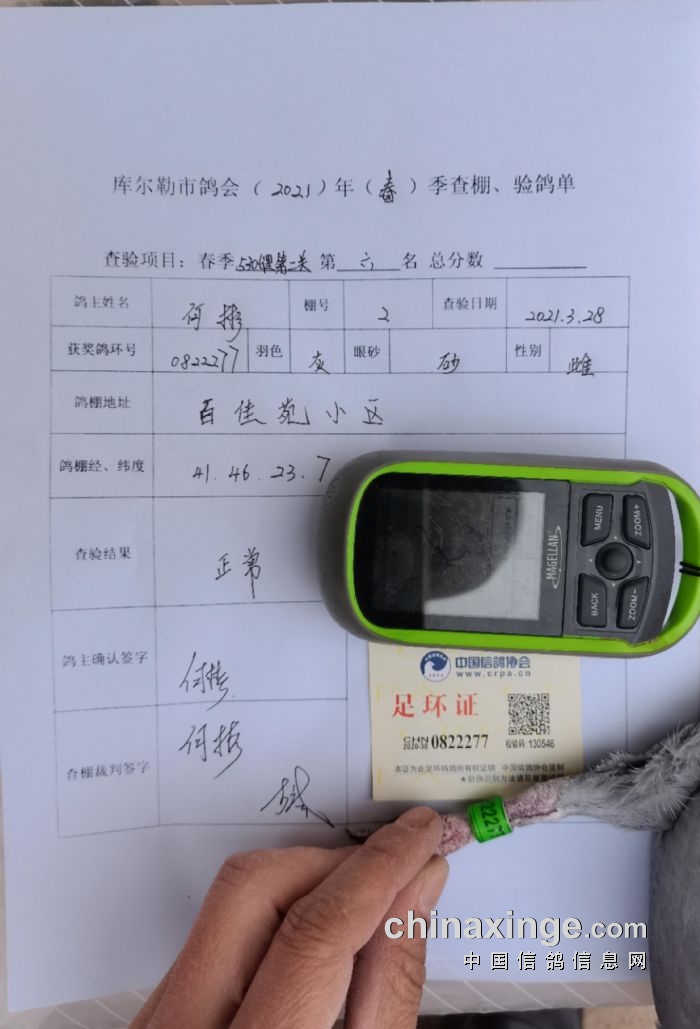 库尔勒市鸽会（2021）年（春）季查棚、验鸽单
查验项目：春季530哩第二关 第 六 名 总分数
鸽主姓名 何彬 棚号 2 查验日期 2021.3.28
获奖鸽环号 0822277 羽色 灰 眼砂 砂 性别 雌
鸽棚地址 百佳苑小区
鸽棚经、纬度 41.46.23.7
查验结果 正常
鸽主确认签字 何彬
查棚裁判签字 何彬
MAGELLAN
MENU
ZOOM+
BACK
ZOOM-
中国信鸽协会
www.crpa.cn
足环证
CHN
2020-30 0822277 校验码: 130546
本证为此足环码鸽所有权证明 中国信鸽协会监制
★防伪识别方法请见背面
2227
chinaxinge.com
中国信鸽信息网